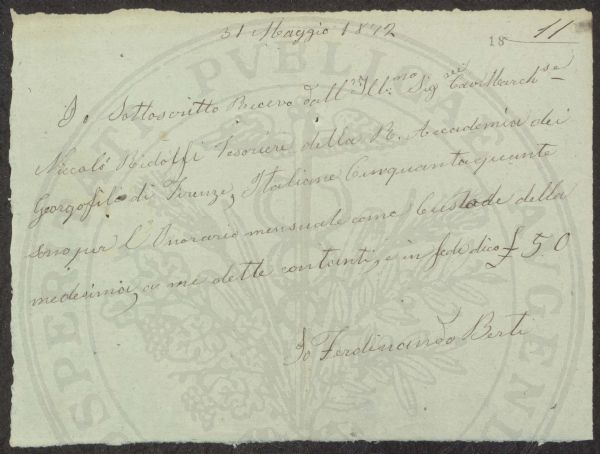 31 Maggio 1872
18 11
Io Sottoscritto Ricevo dall' Ill:mo Sigre Cav March:se
Niccolò Ridolfi Tesoriere della R. Accademia dei
Georgofili di Firenze, Italiane Cinquantaquante
sono per l' Onorario mensuale come Custode della
medesima, a me dette contanti, e in fede dico £ 50
Io Ferdinando Berti
PROSPERITATE PUBLICA AUGENDA